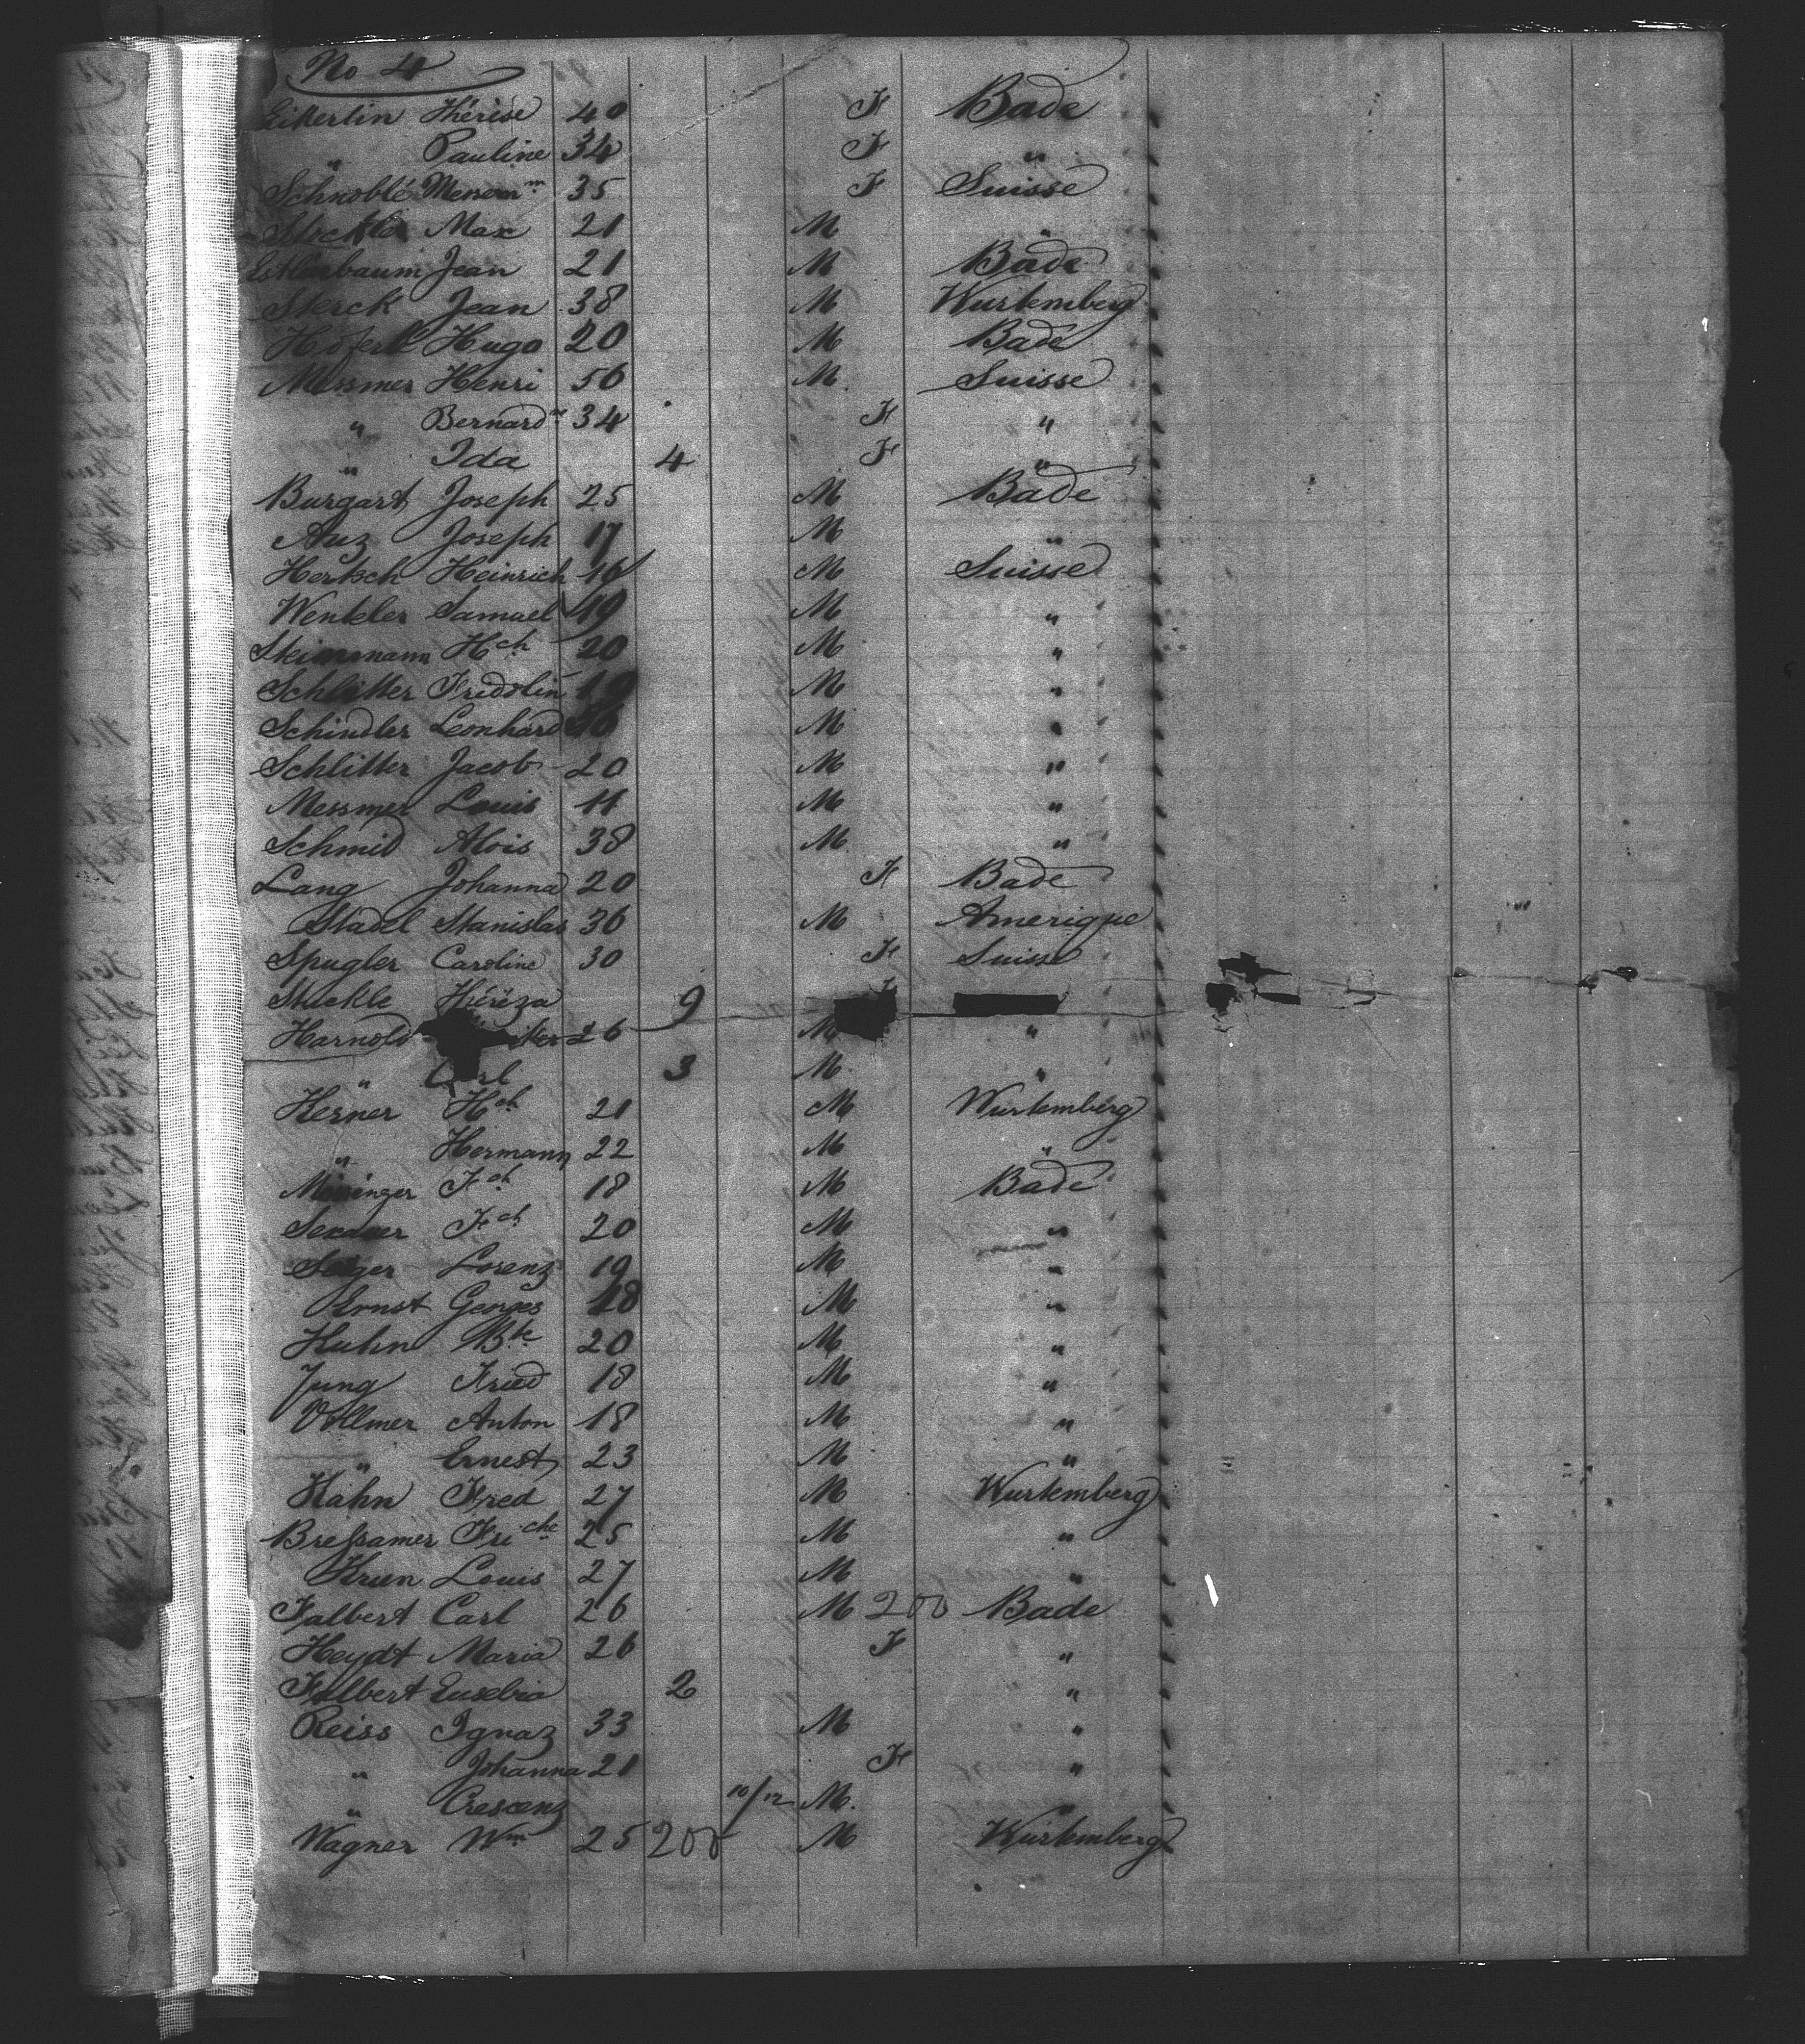 No 4
Eikerlin Thérèse 40 F Bade
" Pauline 34 F "
Schnoblé 35 F Suisse
Max 21 M "
Jean 21 M Bade
Sterck Jean 38 M Wurtemberg
Hugo 20 M Bade
Messmer Henri 56 M Suisse
" Bernard 34 F "
" Ida 4 F "
Burgart Joseph 25 M Bade
Joseph 17 M "
Hertsch Heinrich 16 M Suisse
Wenkler Samuel 19 M "
Steinmann Hch 20 M "
Schlitter Fridolin 19 M "
Schindler Leonhard M "
Schlitter Jacob 20 M "
Messmer Louis 11 M "
Schmid Alois 38 M "
Lang Johanna 20 F Bade
Stadel Stanislas 36 M Amerique
Spugler Caroline 30 F Suisse
Stuckle Théréza 9
Harnold 26 M "
" Carl 3 M "
Kerner Hch 21 M Wurtemberg
" Hermann 22 M "
Fch 18 M Bade
Fch 20 M "
Lorenz 19 M "
Ernst Georges 18 M "
Huhn Bte 20 M "
Jung Fried 18 M "
Vollmer Anton 18 M "
" Ernest 23 M "
Hahn Fred 27 M Wurtemberg
Bressamer Friche 25 M "
Krun Louis 27 M "
Falbert Carl 26 M 200 Bade
Heydt Maria 26 F "
Falbert Eusebia 2 "
Reiss Ignaz 33 M "
" Johanna 21 F "
" Crescenz 10/12 M.
Wagner Wm 25 200 M Wurtemberg